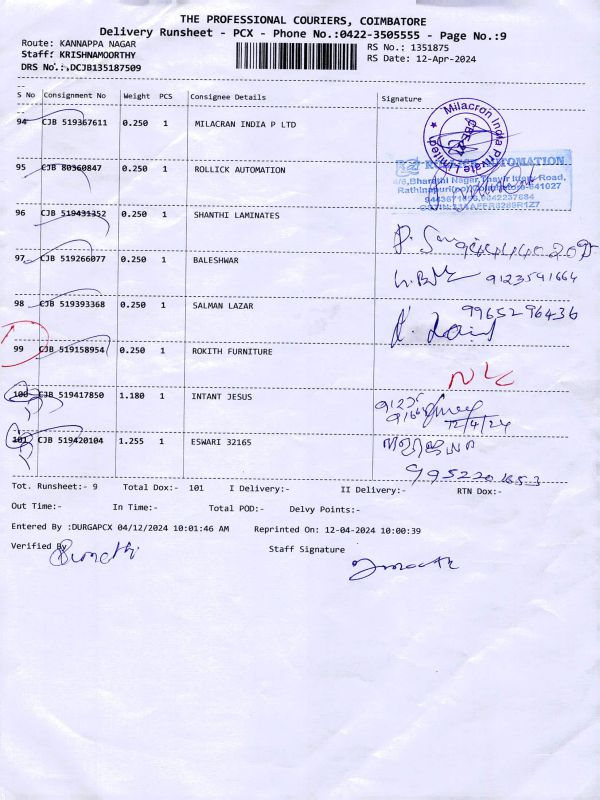 THE PROFESSIONAL COURIERS, COIMBATORE
Delivery Runsheet - PCX - Phone No.:0422-3505555 - Page No.:9
Route: KANNAPPA NAGAR RS No.: 1351875
Staff: KRISHNAMOORTHY RS Date: 12-Apr-2024
DRS No.:.DCJB135187509
S No Consignment No Weight PCS Consignee Details Signature
94 CJB 519367611 0.250 1 MILACRAN INDIA P LTD
Milacron India Private Limited
95 CJB 80360847 0.250 1 ROLLICK AUTOMATION
ROLLICK AUTOMATION
96 CJB 519431352 0.250 1 SHANTHI LAMINATES
97 CJB 519266077 0.250 1 BALESHWAR
9123541664
98 CJB 519393368 0.250 1 SALMAN LAZAR
9965296436
99 CJB 519158954 0.250 1 ROKITH FURNITURE
NLC
100 CJB 519417850 1.180 1 INTANT JESUS
12/4/24
101 CJB 519420104 1.255 1 ESWARI 32165
Tot. Runsheet:- 9 Total Dox:- 101 I Delivery:- II Delivery:- RTN Dox:-
Out Time:- In Time:- Total POD:- Delvy Points:-
Entered By :DURGAPCX 04/12/2024 10:01:46 AM Reprinted On: 12-04-2024 10:00:39
Verified By Staff Signature